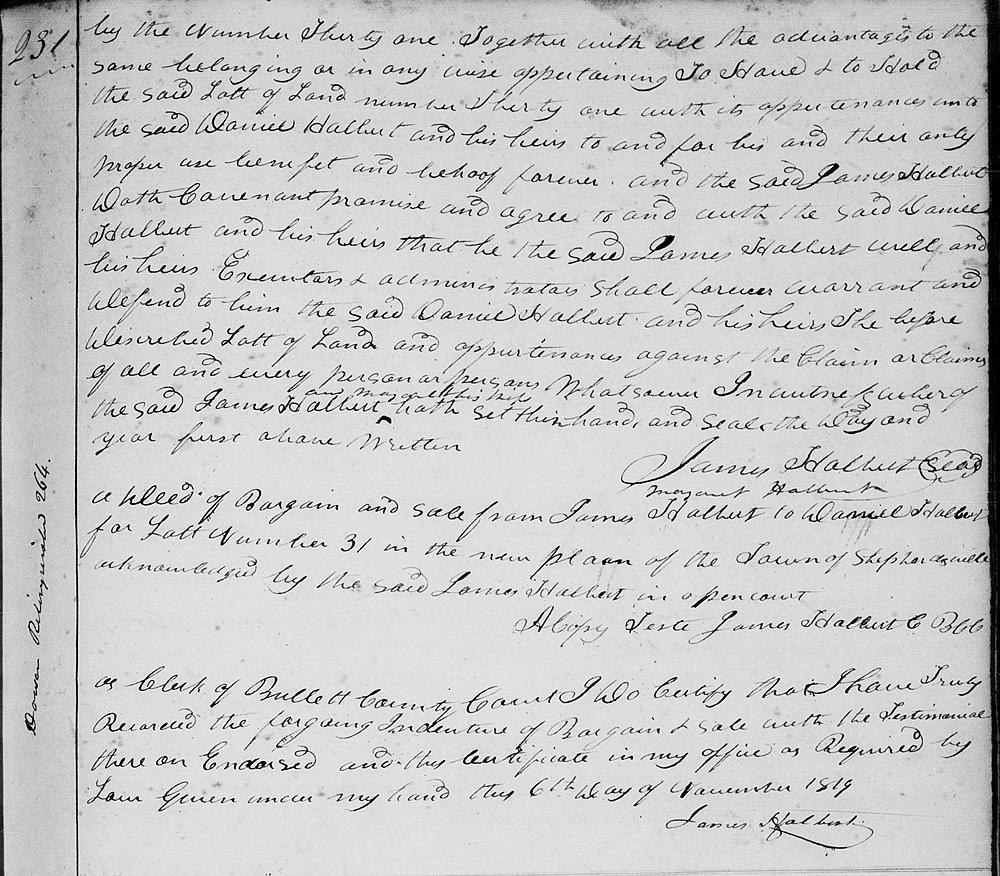 231
by the Number Thirty one Together with all the advantages to the
same belonging or in any wise appertaining To Have & to Hold
the said Lott of Land number Thirty one with its appertenances unto
the said Daniel Halbert and his heirs to and for his and their only
proper use benifet and behoof forever. and the said James Halbert
Doth Covenant promise and agree to and with the said Daniel
Halbert and his heirs that he the said James Halbert will and
his heirs Executors & administrators shall forever warrant and
Defend to him the said Daniel Halbert and his heirs The before
Discrebed Lott of Land and appurtenances against the Claim or Claims
of all and every person or persons Whatsoever In witness whereof
and Margaret his wife
the said James Halbert hath set their hands and seals the Day and
year first above Written
James Halbert Seal
Margaret Halbert
a Deed of Bargain and Sale from James Halbert to Daniel Halbert
for Lott Number 31 in the new plaan of the Town of Shepherdsville
acknowledged by the said James Halbert in open court
A Copy Teste James Halbert C BCC
as Clerk of Bullett County Court I Do Certify that I have Truly
Recorded the forgoing Indenture of Bargain & Sale with the Testimonial
there on Endorsed and this Certificate in my office as Required by
Law Given under my hand this 6th Day of November 1819
James Halbert
Dower Relinquished 264.